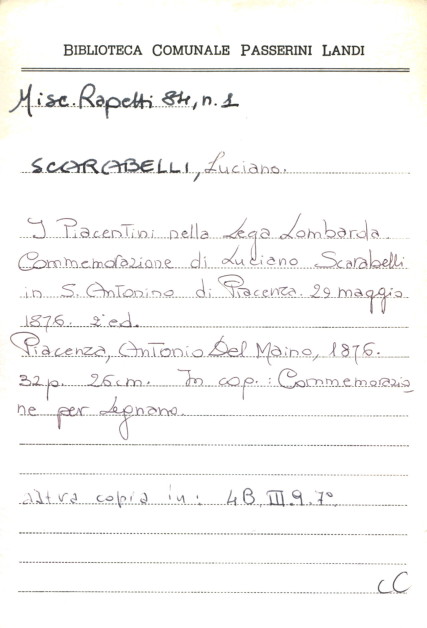 BIBLIOTECA COMUNALE PASSERINI LANDI
Misc. Rapetti 84, n. 1
SCARABELLI, Luciano.
I Piacentini nella Lega Lombarda.
Commemorazione di Luciano Scarabelli
in S. Antonino di Piacenza. 29 maggio
1876. 2ª ed.
Piacenza, Antonio Del Maino, 1876.
32 p. 26 cm. In cop.: Commemorazio
ne per Legnano.
altra copia in: 4B.III.9.7°
CC